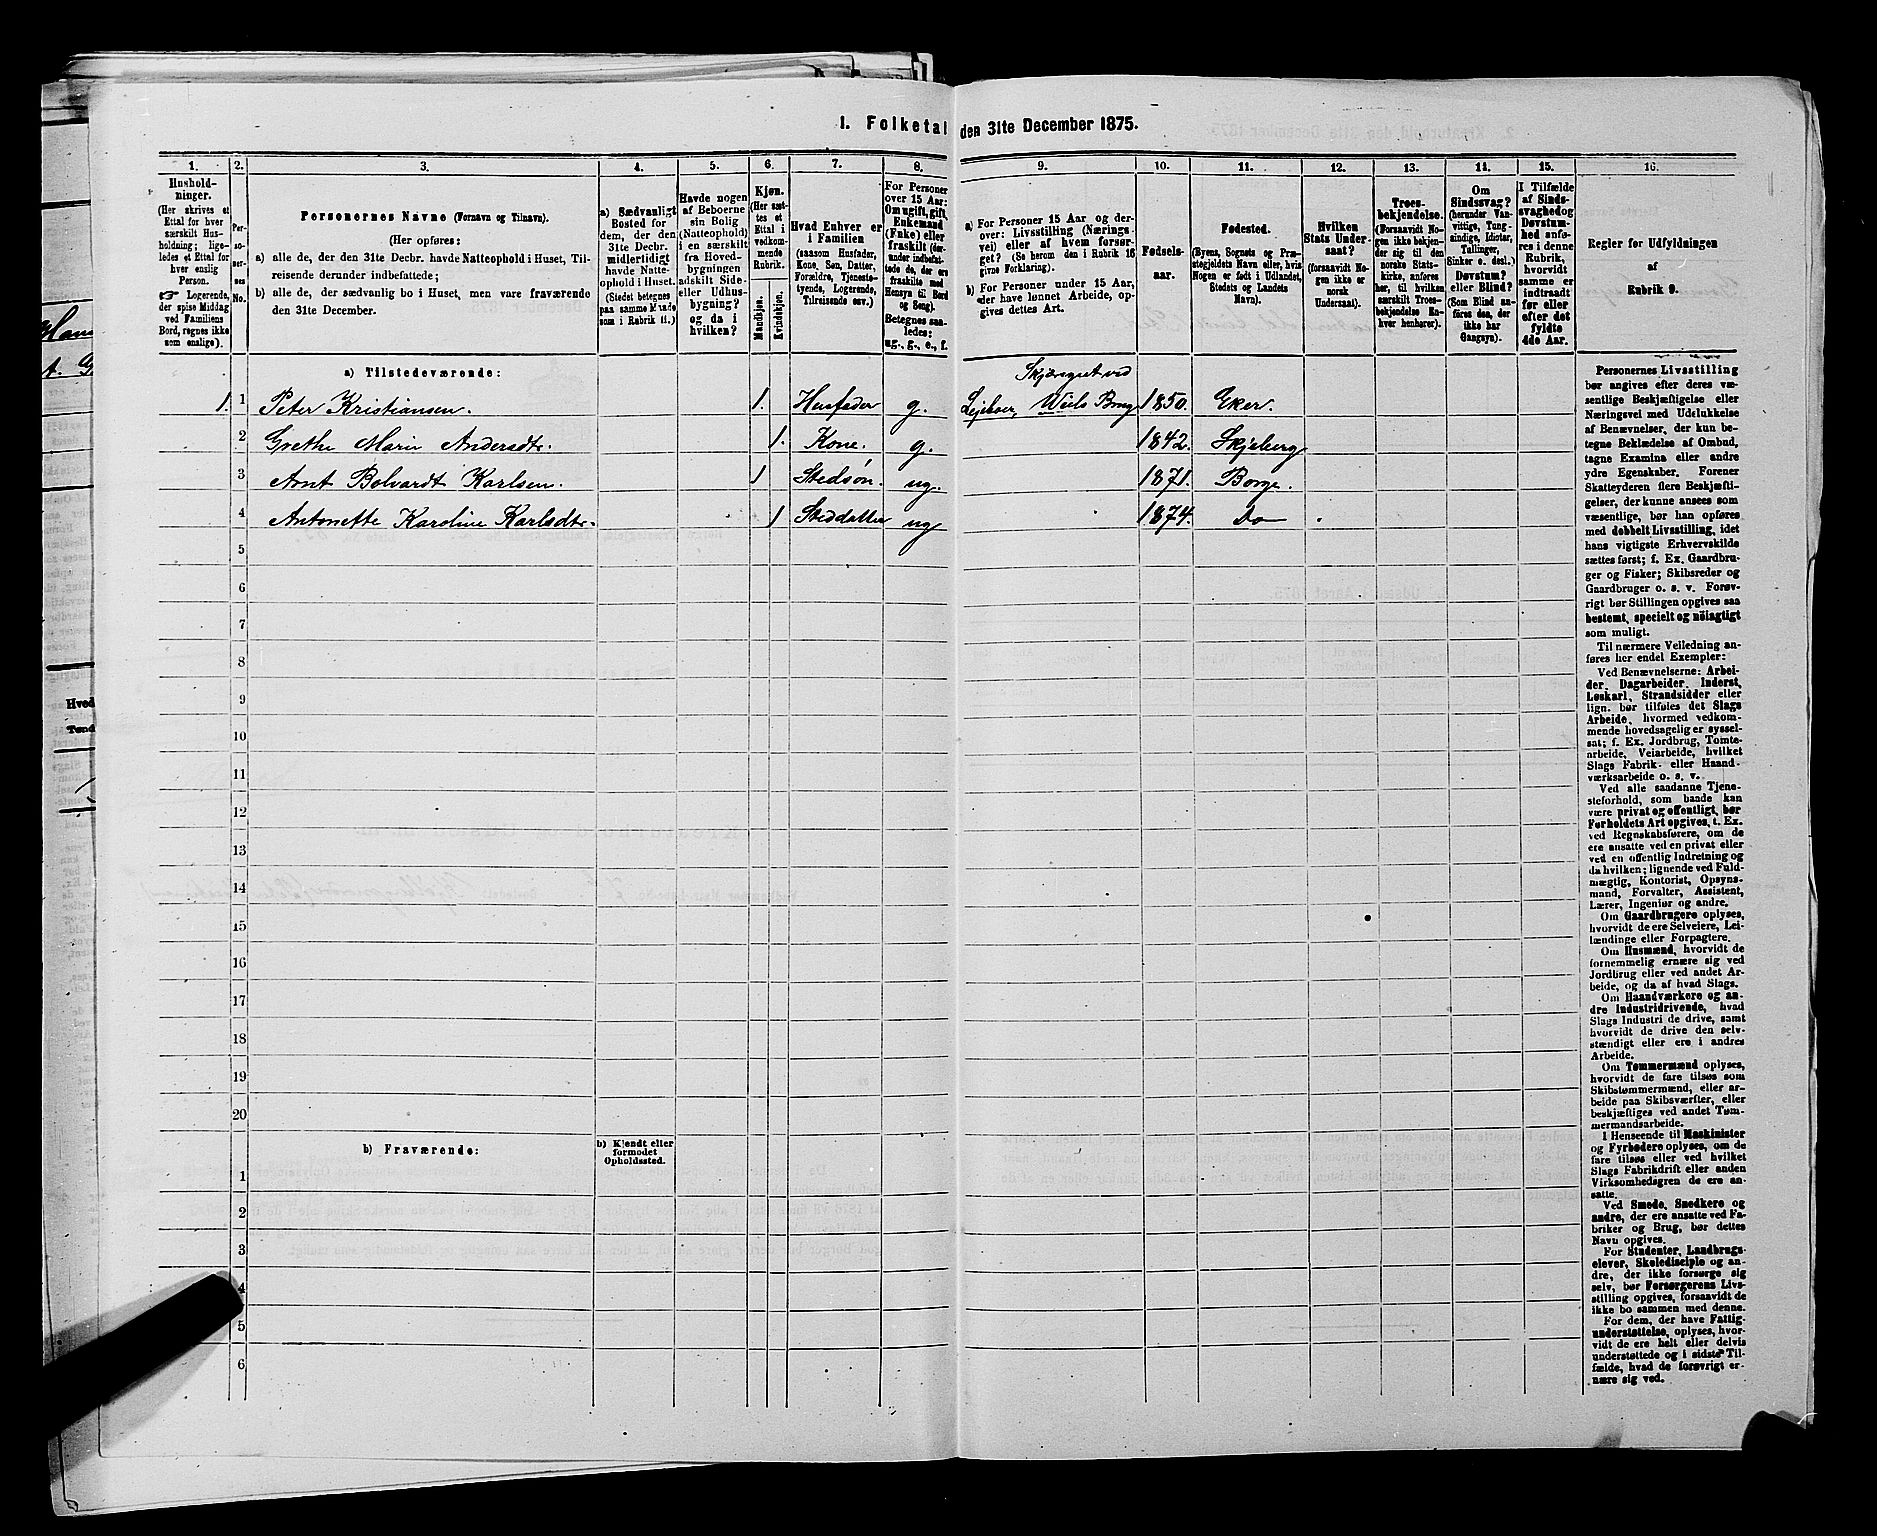 I. Folketal den 31te December 1875.
1. 2. 3. 4. 5. 6. 7. 8. 9. 10. 11. 12. 13. 14. 15. 16.
Hushold-
ninger.
(Her skrives et
Ettal for hver
særskilt Hus-
holdning; lige-
ledes et Ettal for
hver enslig
Person.
☞ Logerende,
der spise Middag
ved Familiens
Bord, regnes ikke
som enslige).
Per-
so-
ner-
nes
No.
Personernes Navne (Fornavn og Tilnavn).
(Her opføres:
a) alle de, der den 31te Decbr. havde Natteophold i Huset, Til-
reisende derunder indbefattede;
b) alle de, der sædvanlig bo i Huset, men vare fraværende
den 31te December.
a) Sædvanligt
Bosted for
dem, der den
31te Decbr.
midlertidigt
havde Natte-
ophold i Huset.
(Stedet betegnes
paa samme Maade
som i Rubrik 11.)
Havde nogen
af Beboerne
sin Bolig
(Natteophold)
i en særskilt
fra Hoved-
bygningen
adskilt Side-
eller Udhus-
bygning?
og da i
hvilken?
Kjøn.
(Her sæt-
tes et
Ettal i
vedkom-
mende
Rubrik.
Mandkjøn.
Kvindekjøn.
Hvad Enhver er
i Familien
(saasom Husfader,
Kone, Søn, Datter,
Forældre, Tjeneste-
tyende, Logerende,
Tilreisende osv.)
For Personer
over 15 Aar:
Om ugift, gift,
Enkemand
(Enke) eller
fraskilt (der-
under indbefat-
tede de, der ere
fraskilte med
Hensyn til Bord
og Seng).
Betegnes saa-
ledes:
ug., g., e., f.
a) For Personer 15 Aar og der-
over: Livsstilling (Nærings-
vei) eller af hvem forsør-
get? (Se herom den i Rubrik 16
givne Forklaring).
b) For Personer under 15 Aar,
der have lønnet Arbeide, op-
gives dettes Art.
Fødsels-
aar.
Fødested.
(Byens, Sognets og Præ-
stegjeldets Navn eller, hvis
Nogen er født i Udlandet,
Stedets og Landets
Navn).
Hvilken
Stats Under-
saat?
(forsaavidt No-
gen ikke er
norsk
Undersaat).
Troes-
bekjendelse.
(Forsaavidt No-
gen ikke bekjen-
der sig til den
norske Stats-
kirke, anføres
her, til hvilken
særskilt Troes-
bekjendelse En-
hver henhører).
Om
Sindssvag?
(herunder Van-
vittige, Tung-
sindige, Idioter,
Tullinger,
Sinker o. desl.)
Døvstum?
eller Blind?
(Som Blind an-
føres den, der
ikke har
Gangsyn).
I Tilfælde
af Sinds-
svaghed og
Døvstum-
hed anfø-
res i denne
Rubrik,
hvorvidt
samme er
indtraadt
før eller
efter det
fyldte
4de Aar.
Regler for Udfyldningen
af
Rubrik 9.
a) Tilstedeværende:
Skjærsgut ved
1. 1 Peter Kristiansen. 1. Husfader g. Leiboer, Wiels Brug 1850. Eker.
2 Grethe Marie Andersdtr. 1. Kone. g. 1842. Skjeberg
3 Arnt Bolvardt Karlsen. 1 Stedsøn. ug. 1871. Borge.
4 Antonette Karoline Karlsdtr. 1 Steddatter ug 1874. Do
5
6
7
8
9
10
11
12
13
14
15
16
17
18
19
20
b) Fraværende:
b) Kjendt eller
formodet
Opholdssted.
1
2
3
4
5
6
Personernes Livsstilling
bør angives efter deres væ-
sentlige Beskjæftigelse eller
Næringsvei med Udelukkelse
af Benævnelser, der kun be-
tegne Beklædelse af Ombud,
tagne Examina eller andre
ydre Egenskaber. Forener
Skatteyderen flere Beskjæfti-
gelser, der kunne ansees som
væsentlige, bør han opføres
med dobbelt Livsstilling, idet
hans vigtigste Erhvervskilde
sættes først; f. Ex. Gaardbru-
ger og Fisker; Skibsreder og
Gaardbruger o. s. v. Forøv-
rigt bør Stillingen opgives saa
bestemt, specielt og nöiagtigt
som muligt.
Til nærmere Veiledning an-
føres her endel Exempler:
Ved Benævnelserne: Arbei-
der, Dagarbeider, Inderst,
Løskarl, Strandsidder eller
lign. bør tilføies det Slags
Arbeide, hvormed vedkom-
mende hovedsagelig er syssel-
sat; f. Ex. Jordbrug, Tomte-
arbeide, Veiarbeide, hvilket
Slags Fabrik- eller Haand-
værksarbeide o. s. v.
Ved alle saadanne Tjene-
steforhold, som baade kan
være privat og offentligt, bør
Forholdets Art opgives, t. Ex.
ved Regnskabsførere, om de
ere ansatte ved en privat eller
ved en offentlig Indretning og
da hvilken; lignende ved Fuld-
mægtig, Kontorist, Opsyns-
mand, Forvalter, Assistent,
Lærer, Ingeniør og andre.
Om Gaardbrugere oplyses,
hvorvidt de ere Selveiere, Lei-
lændinge eller Forpagtere.
Om Husmænd, hvorvidt de
fornemmelig ernære sig ved
Jordbrug eller ved andet Ar-
beide, og da af hvad Slags.
Om Haandværkere og an-
dre Industridrivende, hvad
Slags Industri de drive, samt
hvorvidt de drive den selv-
stændigt eller ere i andres
Arbeide.
Om Tømmermænd oplyses,
hvorvidt de fare tilsøs som
Skibstømmermænd, eller ar-
beide paa Skibsværfter, eller
beskjæftiges ved andet Tøm-
mermandsarbeide.
I Henseende til Maskinister
og Fyrbødere oplyses, om de
fare tilsøs eller ved hvilket
Slags Fabrikdrift eller anden
Virksomhedsgren de ere an-
satte.
Ved Smede, Snedkere og
andre, der ere ansatte ved Fa-
briker og Brug, bør dettes
Navn opgives.
For Studenter, Landbrugs-
elever, Skoledisciple og an-
dre, der ikke forsørge sig
selv, bør Forsørgerens Livs-
stilling opgives, forsaavidt de
ikke bo sammen med denne.
For dem, der have Fattig-
understøttelse, oplyses, hvor-
vidt de ere helt eller delvis
understøttede og i sidste Til-
fælde, hvad de forøvrigt er-
nære sig ved.